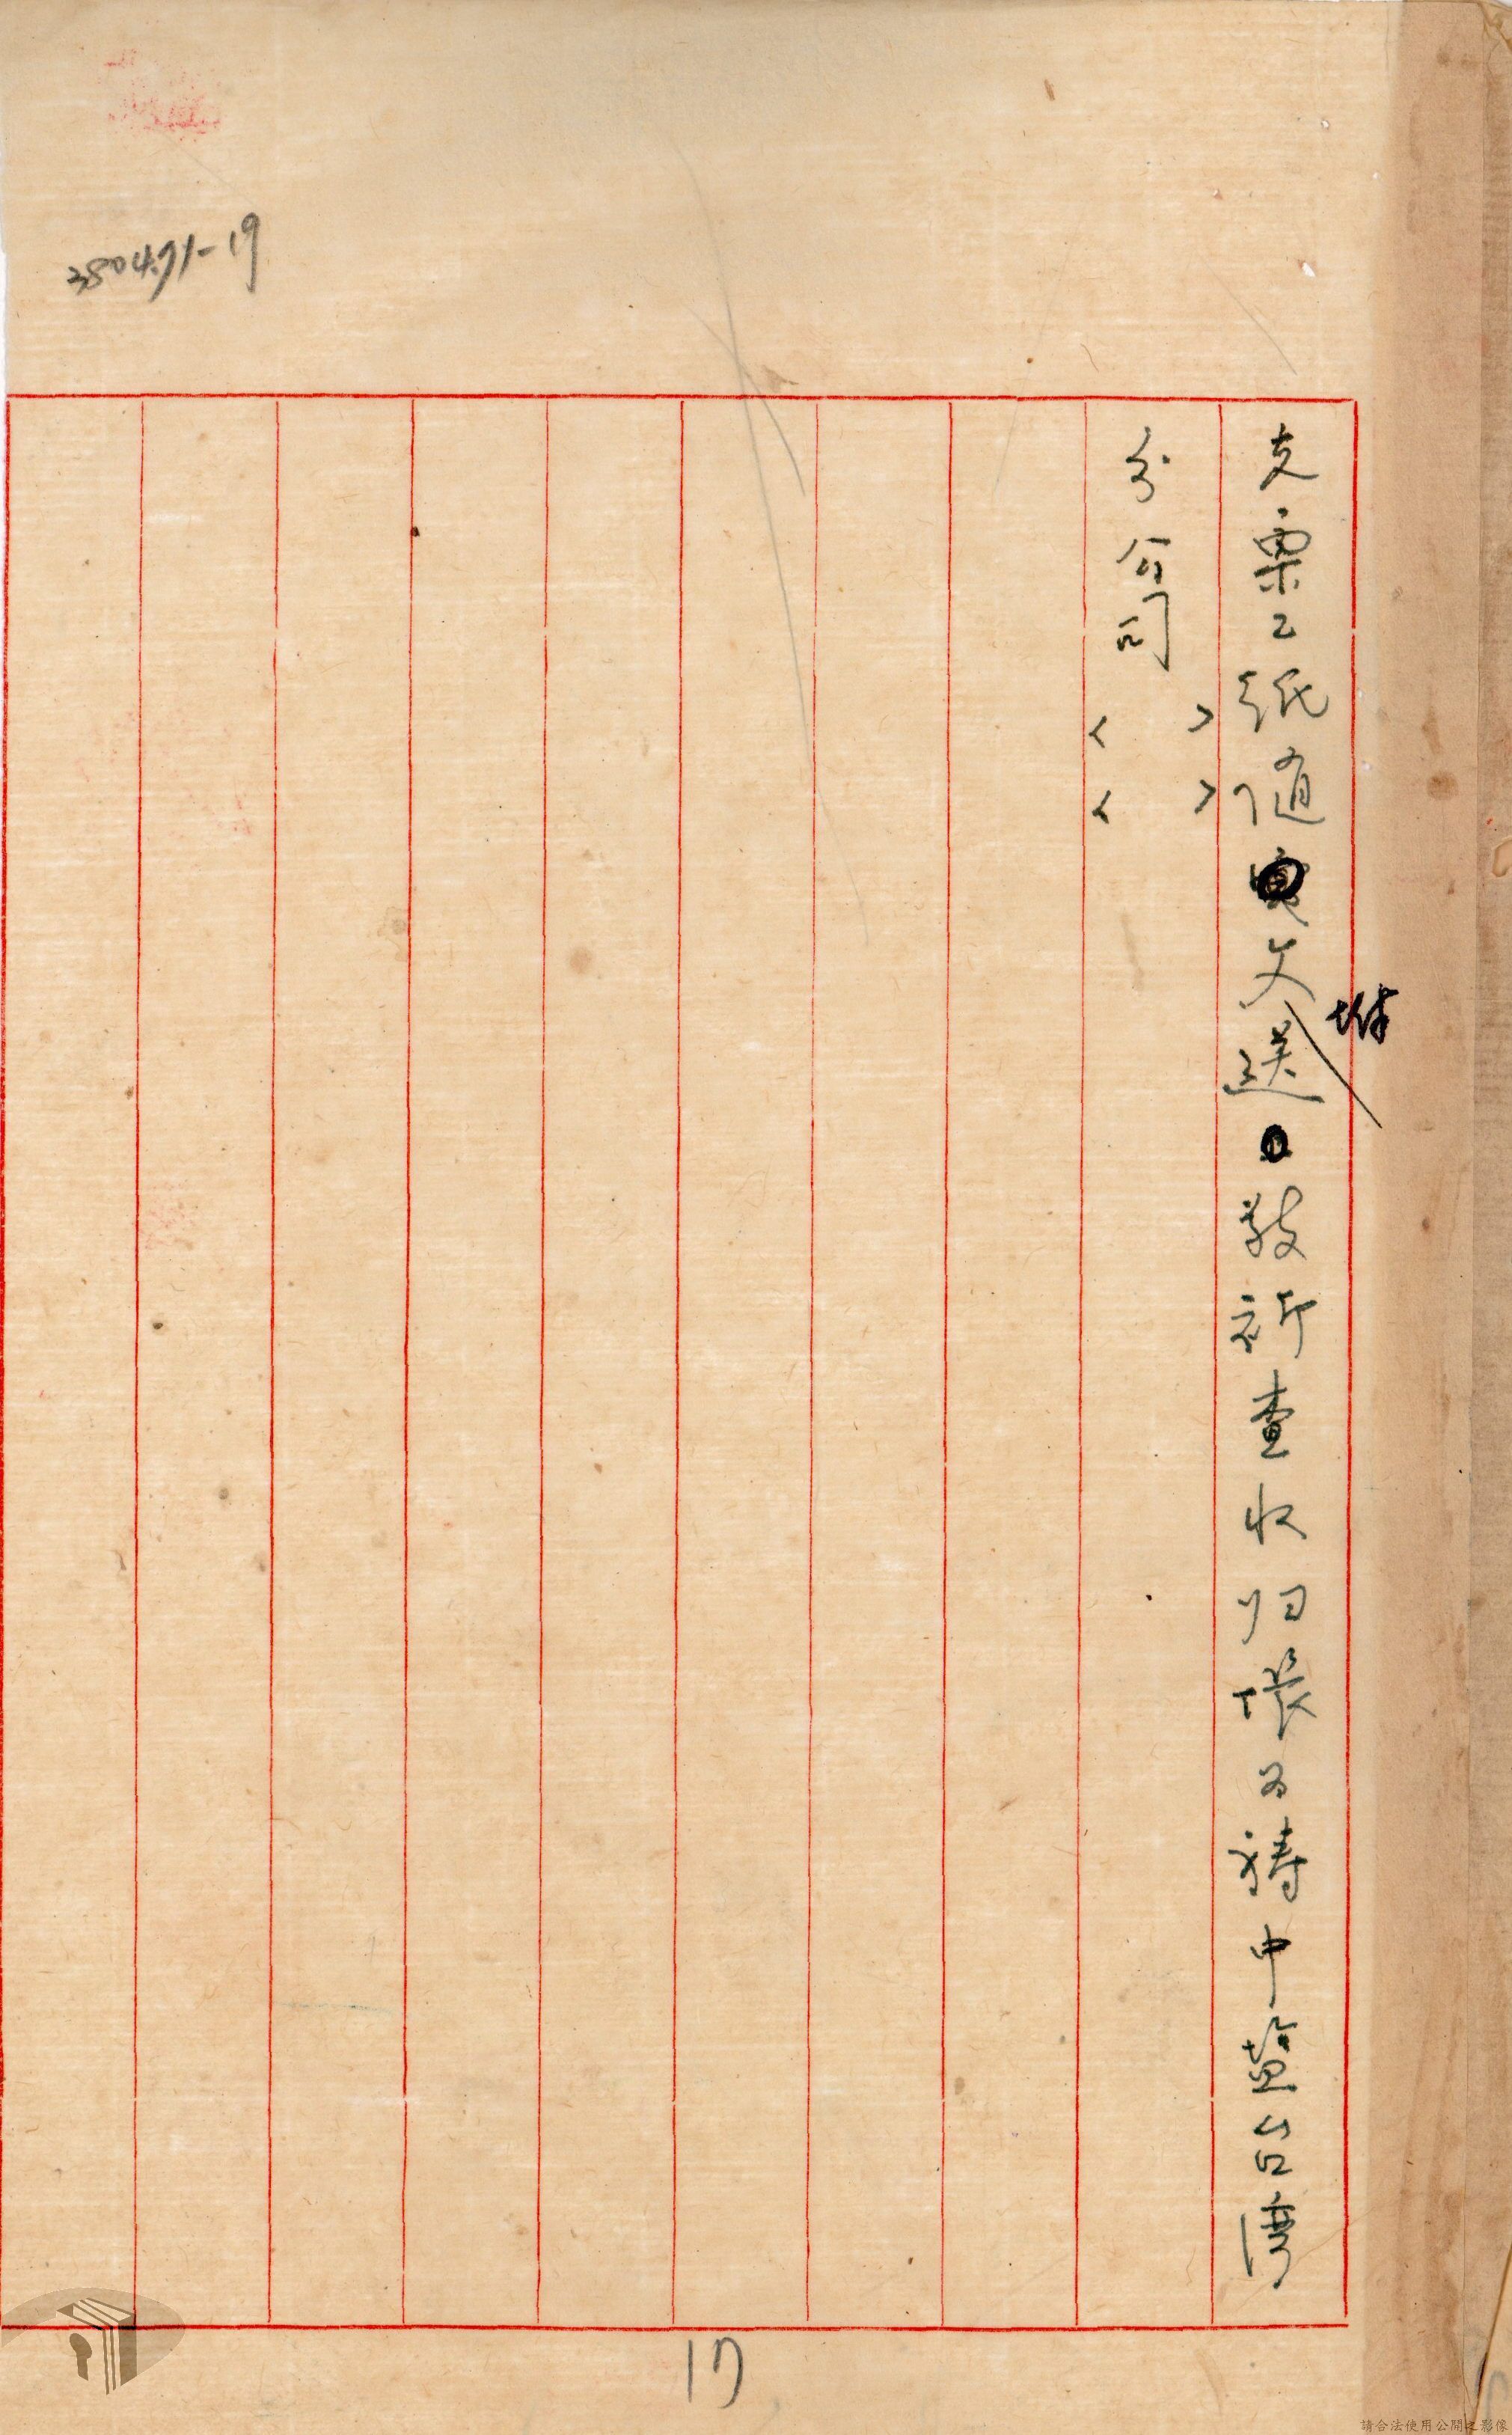 支票乙紙隨文附送敬祈查收归帳为禱中蠶台灣
分公司
380471-19
17
請合法使用公開之影像